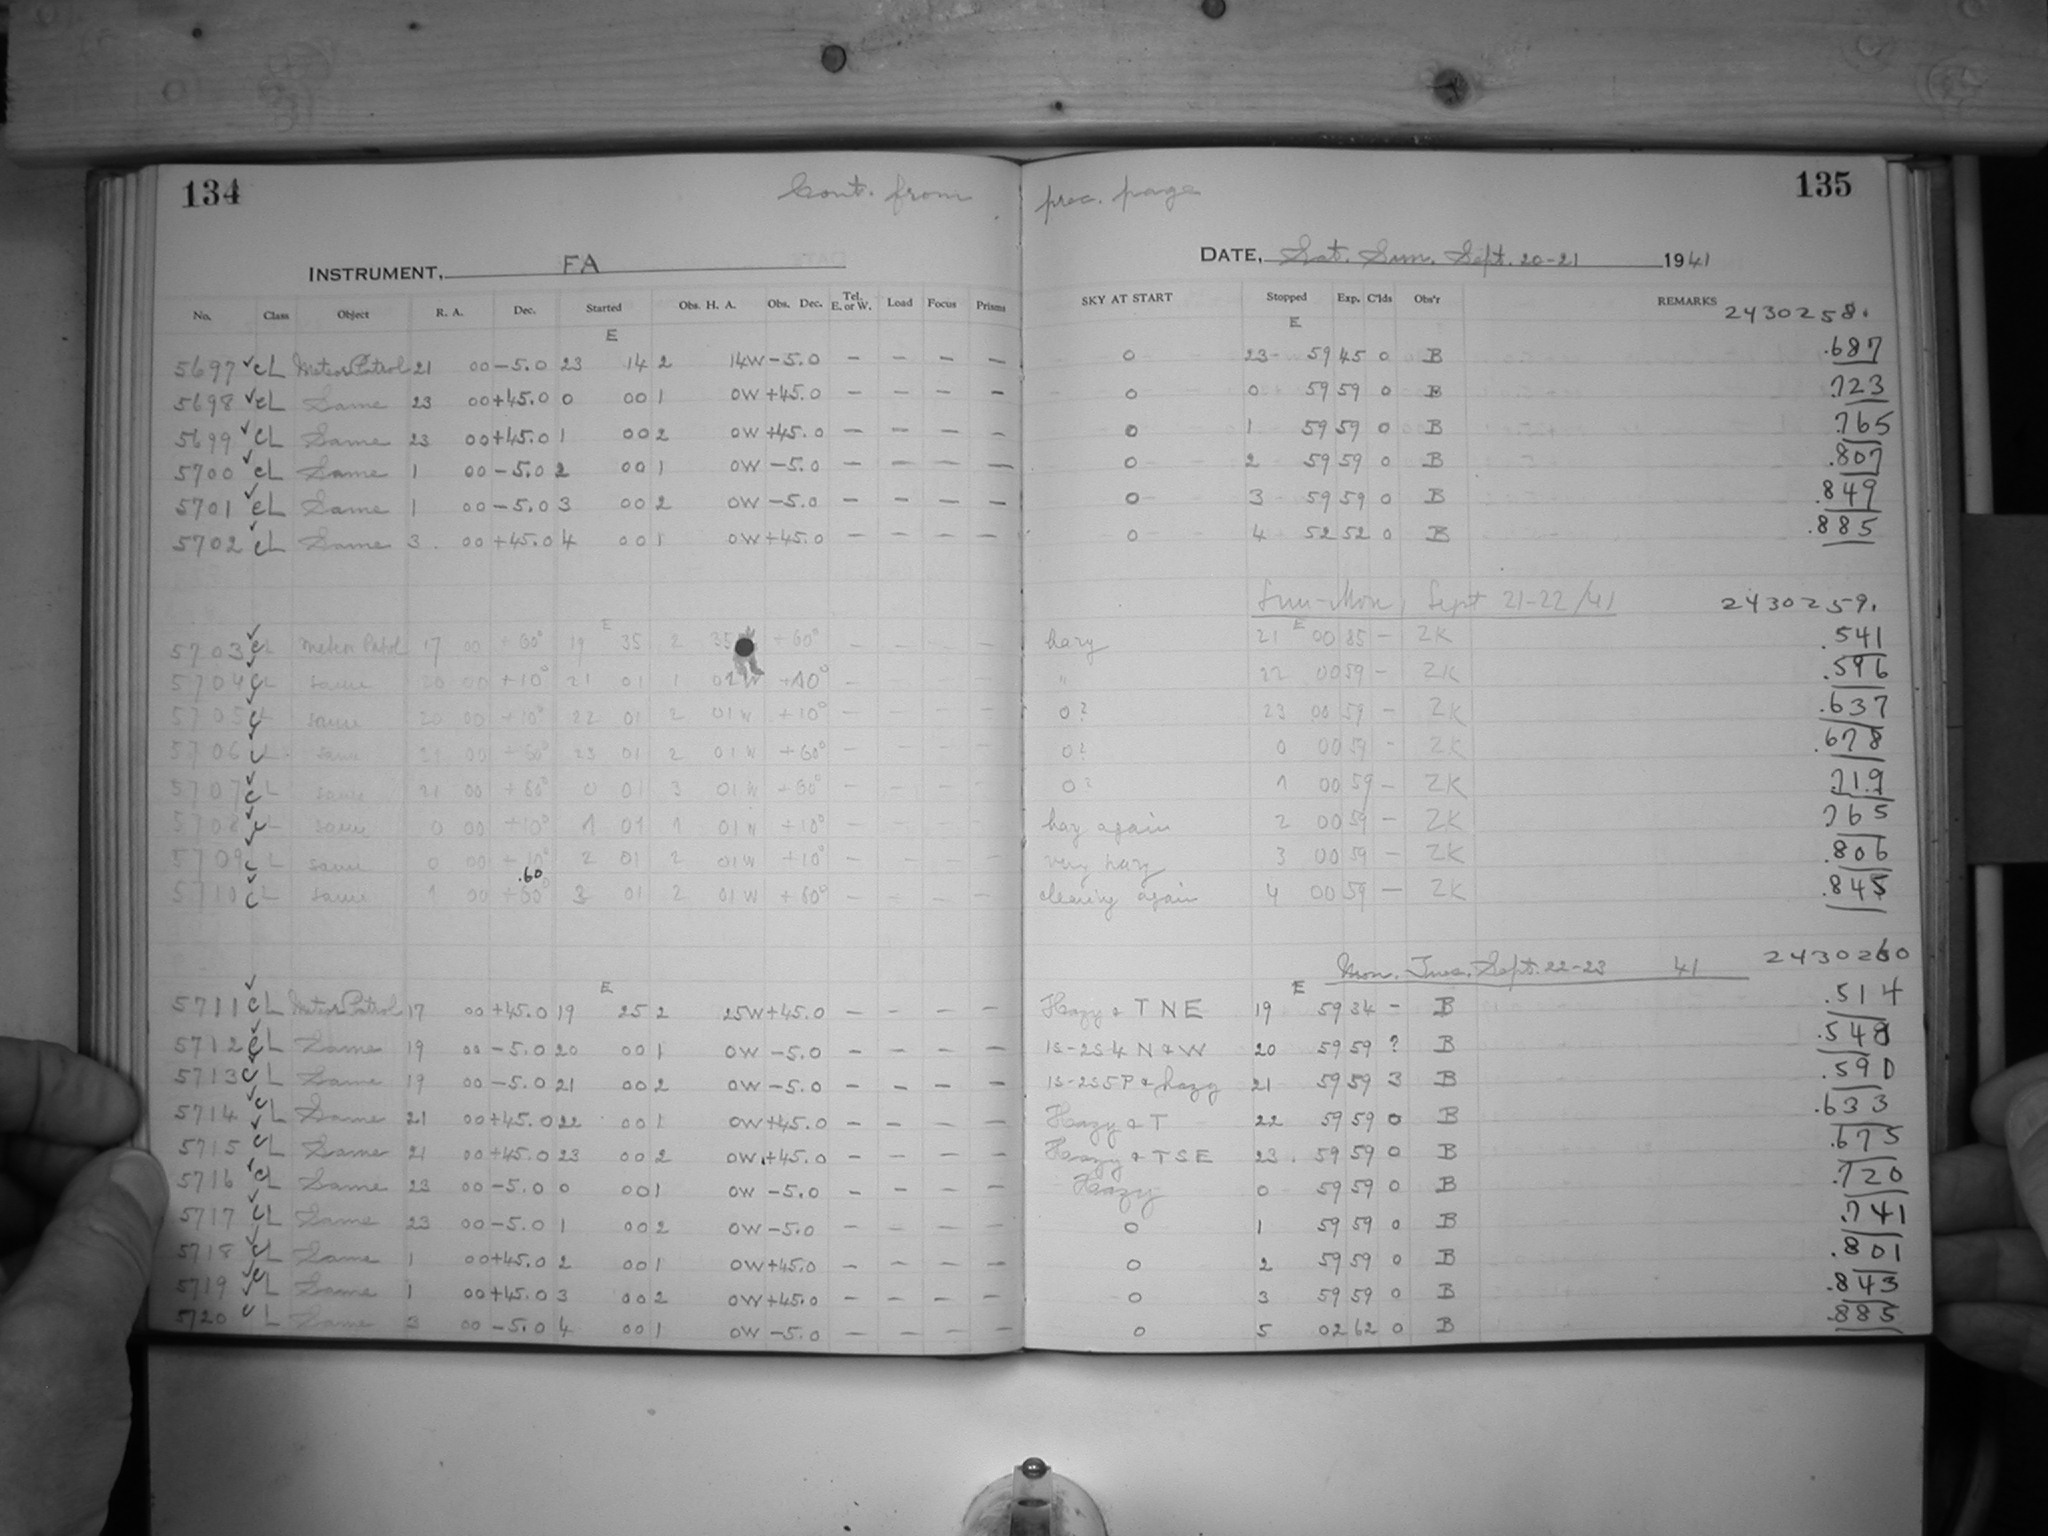 134
Cont. from prec. page
135
INSTRUMENT, FA
DATE, Sat. Sun. Sept. 20-21 1941
No. Class Object R. A. Dec. Started Obs. H. A. Obs. Dec. Tel. E. or W. Load Focus Prisms SKY AT START Stopped Exp. C'lds Obs'r REMARKS
E E 2430258.
5697 ✓ cL Meteor Patrol 21 00 -5.0 23 14 2 14W -5.0 - - - - 0 23 59 45 0 B .687
5698 ✓ cL Same 23 00 +45.0 0 00 1 0W +45.0 - - - - 0 0 59 59 0 B .723
5699 ✓ cL Same 23 00 +45.0 1 00 2 0W +45.0 - - - - 0 1 59 59 0 B .765
5700 ✓ cL Same 1 00 -5.0 2 00 1 0W -5.0 - - - - 0 2 59 59 0 B .807
5701 ✓ cL Same 1 00 -5.0 3 00 2 0W -5.0 - - - - 0 3 59 59 0 B .849
5702 ✓ cL Same 3 00 +45.0 4 00 1 0W +45.0 - - - - 0 4 52 52 0 B .885
Sun-Mon, Sept 21-22/41 2430259.
E E
5703 ✓ cL Meteor Patrol 17 00 +60° 19 35 2 35 +60° - - - - hazy 21 00 85 - ZK .541
5704 ✓ cL same 20 00 +10° 21 01 1 01W +10° - - - - " 22 00 59 - ZK .596
5705 ✓ cL same 20 00 +10° 22 01 2 01W +10° - - - - 0? 23 00 59 - ZK .637
5706 ✓ cL same 21 00 +60° 23 01 2 01W +60° - - - - 0? 0 00 59 - ZK .678
5707 ✓ cL same 21 00 +60° 0 01 3 01W +60° - - - - 0? 1 00 59 - ZK .719
5708 ✓ cL same 0 00 +10° 1 01 1 01W +10° - - - - hazy again 2 00 59 - ZK .765
5709 ✓ cL same 0 00 +10° 2 01 2 01W +10° - - - - very hazy 3 00 59 - ZK .806
.60
5710 ✓ cL same 1 00 +60° 3 01 2 01W +60° - - - - clearing again 4 00 59 - ZK .845
Mon. Tues. Sept. 22-23 41 2430260
E E
5711 ✓ cL Meteor Patrol 17 00 +45.0 19 25 2 25W +45.0 - - - - Hazy & T NE 19 59 34 - B .514
5712 ✓ cL Same 19 00 -5.0 20 00 1 0W -5.0 - - - - 1s-2s4 N & W 20 59 59 ? B .548
5713 ✓ cL Same 19 00 -5.0 21 00 2 0W -5.0 - - - - 1s-2s5P & hazy 21 59 59 3 B .590
5714 ✓ cL Same 21 00 +45.0 22 00 1 0W +45.0 - - - - Hazy & T 22 59 59 0 B .633
5715 ✓ cL Same 21 00 +45.0 23 00 2 0W +45.0 - - - - Hazy & T SE 23 59 59 0 B .675
5716 ✓ cL Same 23 00 -5.0 0 00 1 0W -5.0 - - - - Hazy 0 59 59 0 B .720
5717 ✓ cL Same 23 00 -5.0 1 00 2 0W -5.0 - - - - 0 1 59 59 0 B .741
5718 ✓ cL Same 1 00 +45.0 2 00 1 0W +45.0 - - - - 0 2 59 59 0 B .801
5719 ✓ cL Same 1 00 +45.0 3 00 2 0W +45.0 - - - - 0 3 59 59 0 B .843
5720 ✓ cL Same 3 00 -5.0 4 00 1 0W -5.0 - - - - 0 5 02 62 0 B .885